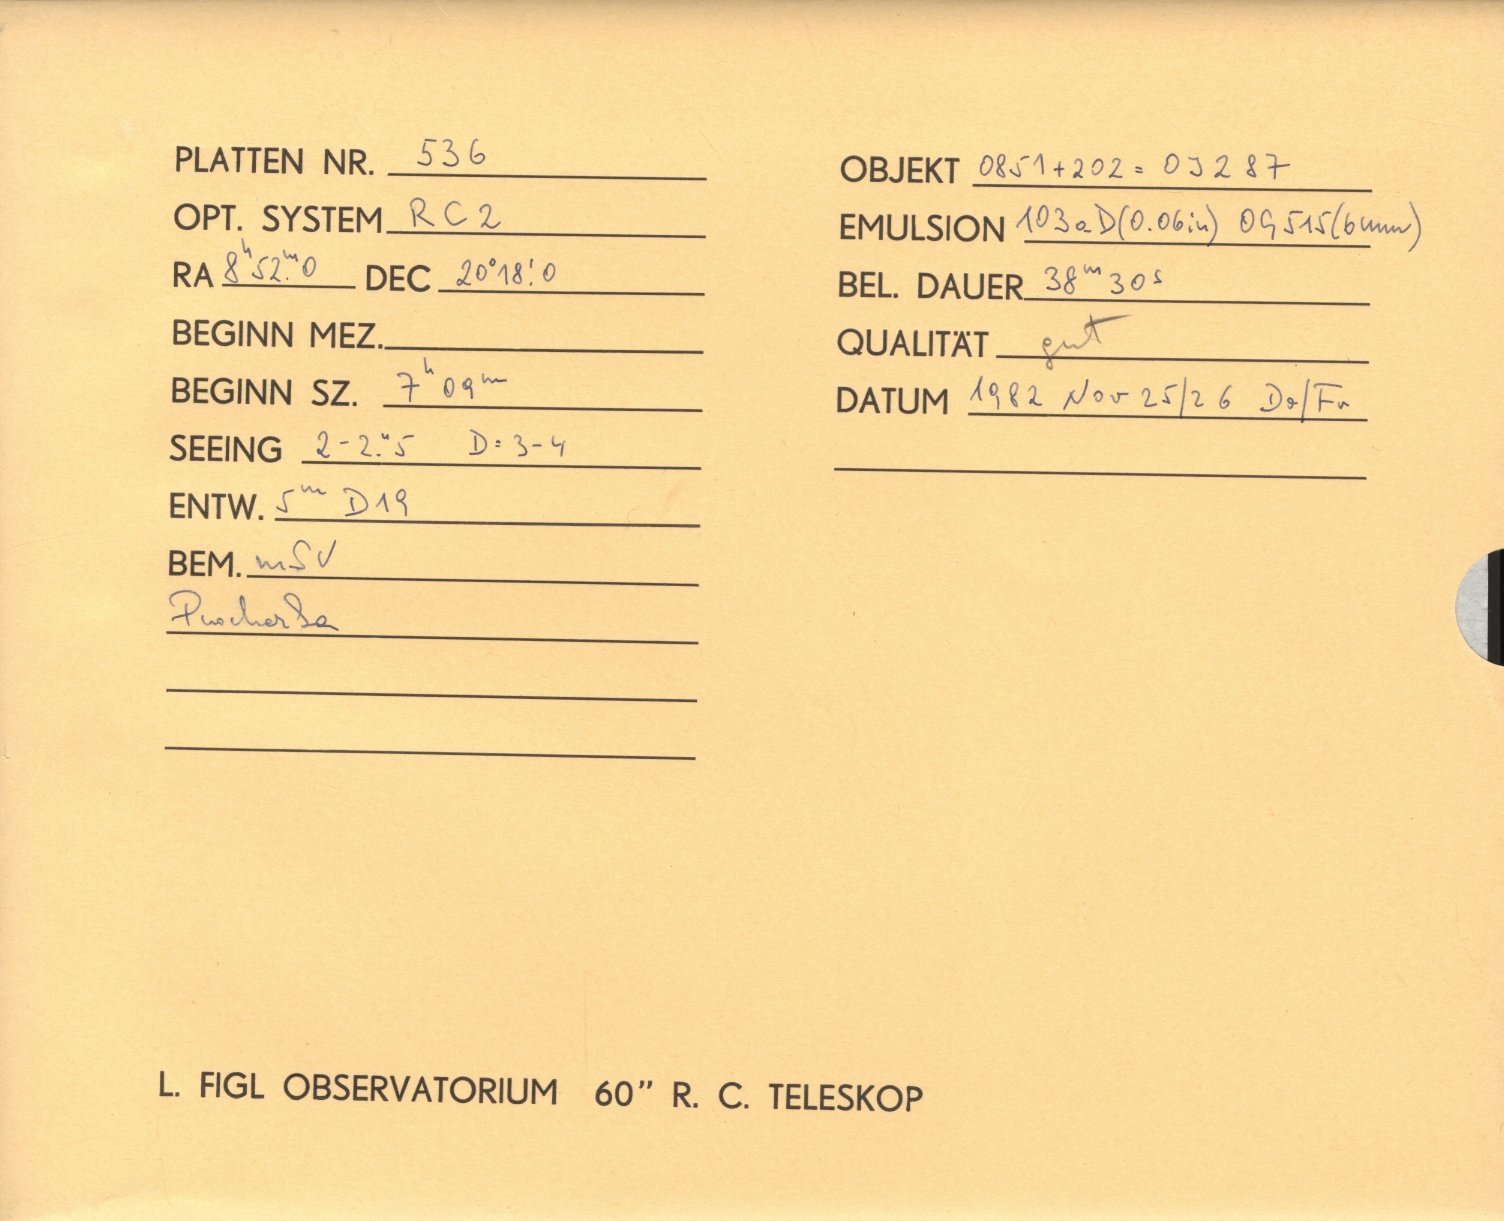 PLATTEN NR. 536
OPT. SYSTEM RC2
RA 8h52m.0 DEC 20°18'.0
BEGINN MEZ.
BEGINN SZ. 7h09m
SEEING 2-2".5 D=3-4
ENTW. 5m D19
BEM. mSV
OBJEKT 0851+202 = OJ287
EMULSION 103aD(0.06in) OG515(6mm)
BEL. DAUER 38m30s
QUALITÄT gut
DATUM 1982 Nov 25/26 Do/Fr
L. FIGL OBSERVATORIUM 60” R. C. TELESKOP